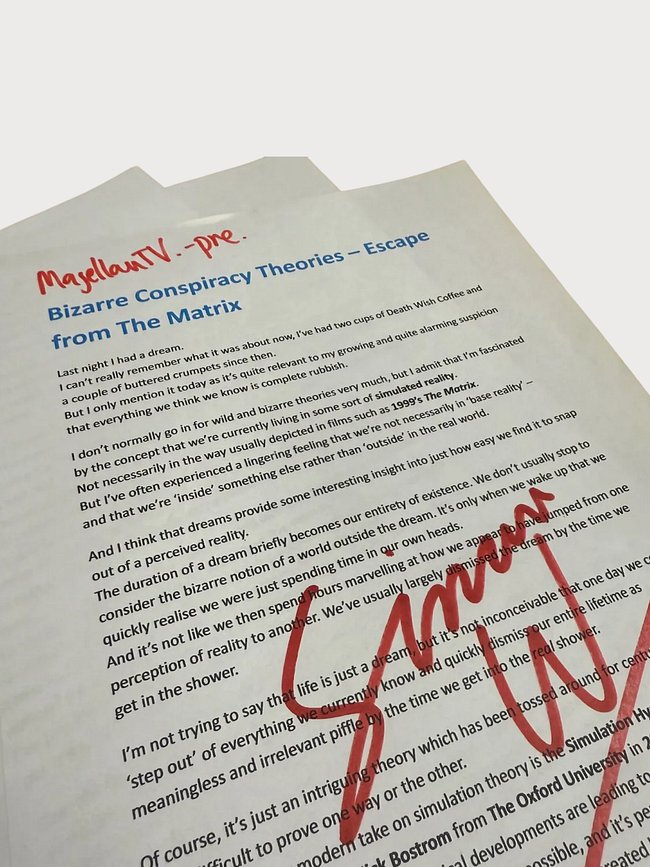 MagellanTV.-pre.
Bizarre Conspiracy Theories – Escape
from The Matrix
Last night I had a dream.
I can't really remember what it was about now, I've had two cups of Death Wish Coffee and
a couple of buttered crumpets since then.
But I only mention it today as it's quite relevant to my growing and quite alarming suspicion
that everything we think we know is complete rubbish.
I don't normally go in for wild and bizarre theories very much, but I admit that I'm fascinated
by the concept that we're currently living in some sort of simulated reality.
Not necessarily in the way usually depicted in films such as 1999's The Matrix.
But I've often experienced a lingering feeling that we're not necessarily in 'base reality' –
and that we're 'inside' something else rather than 'outside' in the real world.
And I think that dreams provide some interesting insight into just how easy we find it to snap
out of a perceived reality.
The duration of a dream briefly becomes our entirety of existence. We don't usually stop to
consider the bizarre notion of a world outside the dream. It's only when we wake up that we
quickly realise we were just spending time in our own heads.
And it's not like we then spend hours marvelling at how we appear to have jumped from one
perception of reality to another. We've usually largely dismissed the dream by the time we
get in the shower.
Simon
W
I'm not trying to say that life is just a dream, but it's not inconceivable that one day we
'step out' of everything we currently know and quickly dismiss our entire lifetime as
meaningless and irrelevant piffle by the time we get into the real shower.
Of course, it's just an intriguing theory which has been tossed around for
difficult to prove one way or the other.
modern take on simulation theory is the Simulation
Bostrom from The Oxford University in
developments are leading to
and it's